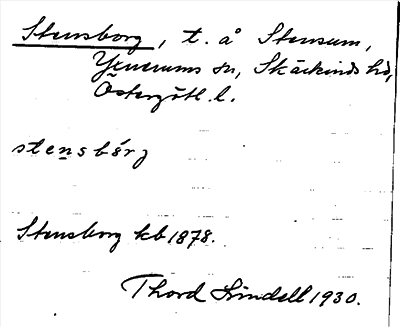 Stensborg, t. å Stensum,
Yxnerums sn, Skärkinds hd,
Östergötl. l.
stensbårj
Stensborg kb 1878.
Thord Lindell 1930.